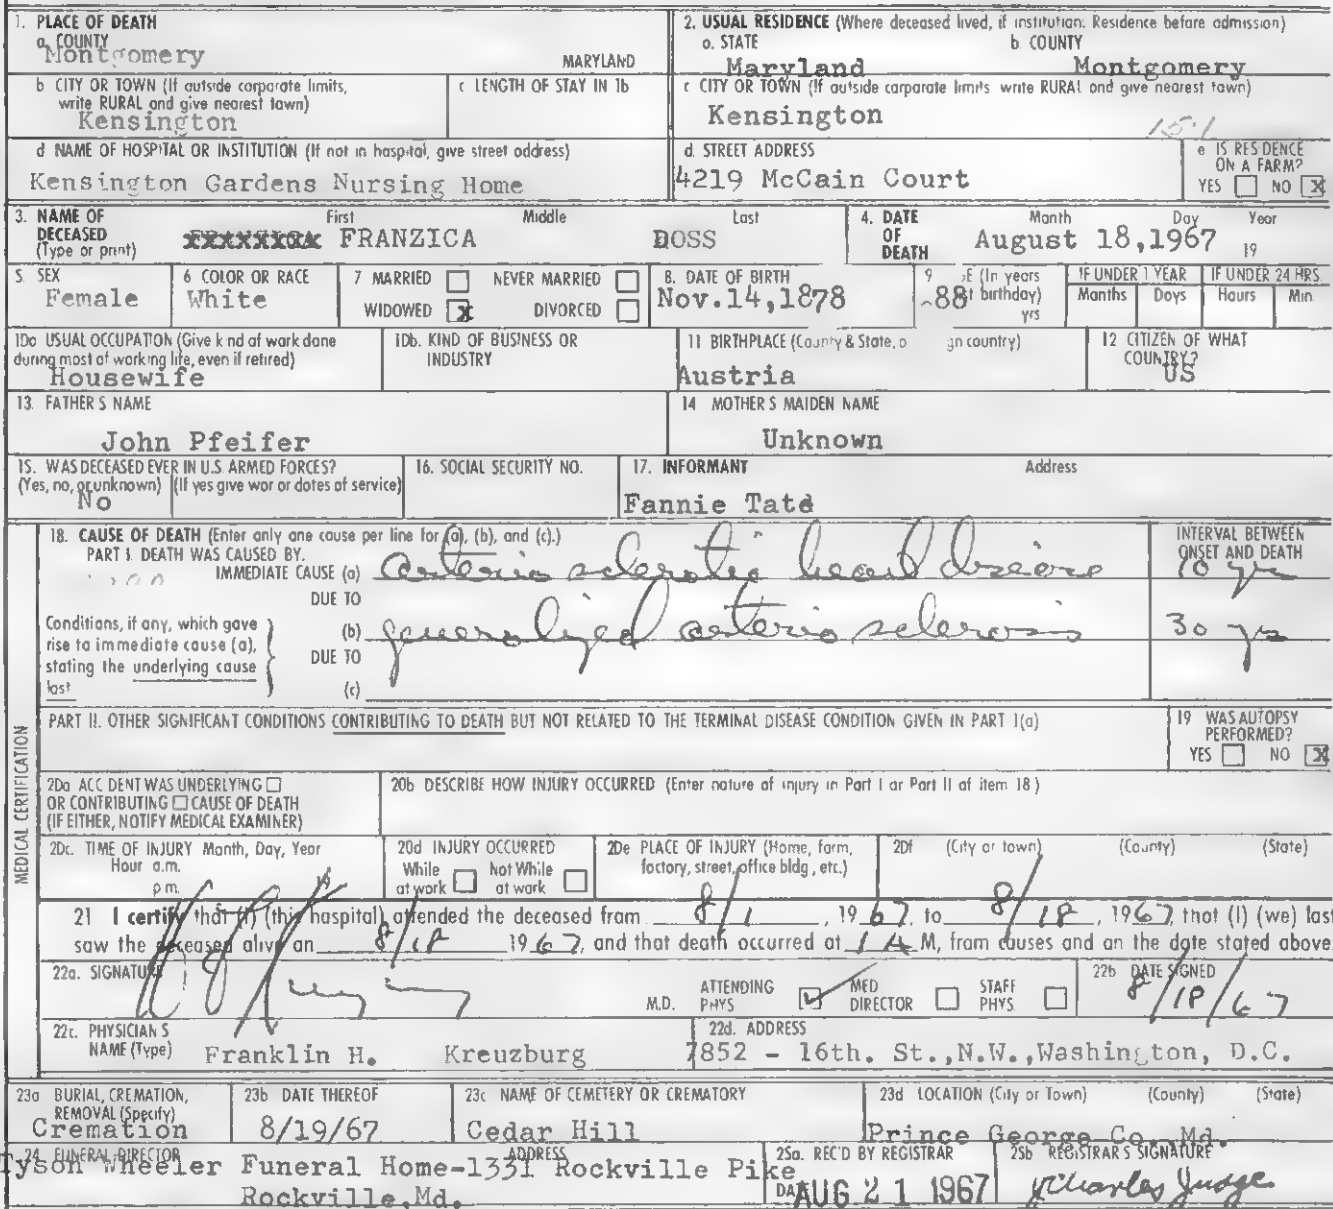 1. PLACE OF DEATH
a. COUNTY
Montgomery MARYLAND
2. USUAL RESIDENCE (Where deceased lived, if institution: Residence before admission)
a. STATE b. COUNTY
Maryland Montgomery
b CITY OR TOWN (If outside corporate limits,
write RURAL and give nearest town)
Kensington
c LENGTH OF STAY IN 1b
c CITY OR TOWN (If outside corporate limits write RURAL and give nearest town)
Kensington
15-1
d NAME OF HOSPITAL OR INSTITUTION (If not in hospital, give street address)
Kensington Gardens Nursing Home
d. STREET ADDRESS
4219 McCain Court
e IS RESIDENCE
ON A FARM?
YES NO X
3. NAME OF
DECEASED
(Type or print)
First Middle Last
xxxxxxxx FRANZICA DOSS
4. DATE
OF
DEATH
Month Day Year
August 18,1967 19
5. SEX
Female
6 COLOR OR RACE
White
7 MARRIED NEVER MARRIED
WIDOWED X DIVORCED
8. DATE OF BIRTH
Nov.14,1878
9 GE (In years
88 t birthday)
yrs
IF UNDER 1 YEAR
Months Days
IF UNDER 24 HRS.
Hours Min.
10a USUAL OCCUPATION (Give kind of work done
during most of working life, even if retired)
Housewife
10b. KIND OF BUSINESS OR
INDUSTRY
11 BIRTHPLACE (County & State, o gn country)
Austria
12 CITIZEN OF WHAT
COUNTRY?
US
13. FATHER S NAME
John Pfeifer
14 MOTHER S MAIDEN NAME
Unknown
15. WAS DECEASED EVER IN U.S. ARMED FORCES?
(Yes, no, or unknown) (If yes give war or dates of service)
No
16. SOCIAL SECURITY NO.
17. INFORMANT Address
Fannie Tate
MEDICAL CERTIFICATION
18. CAUSE OF DEATH (Enter only one cause per line for (a), (b), and (c).)
PART I. DEATH WAS CAUSED BY.
IMMEDIATE CAUSE (a) arterio sclerotic heart disease
INTERVAL BETWEEN
ONSET AND DEATH
10 yrs
DUE TO
Conditions, if any, which gave
rise to immediate cause (a),
stating the underlying cause
last
(b) generalized arterio sclerosis 30 yrs
DUE TO
(c)
PART II. OTHER SIGNIFICANT CONDITIONS CONTRIBUTING TO DEATH BUT NOT RELATED TO THE TERMINAL DISEASE CONDITION GIVEN IN PART I(a)
19 WAS AUTOPSY
PERFORMED?
YES NO X
20a ACCIDENT WAS UNDERLYING
OR CONTRIBUTING CAUSE OF DEATH
(IF EITHER, NOTIFY MEDICAL EXAMINER)
20b DESCRIBE HOW INJURY OCCURRED (Enter nature of injury in Part I or Part II of item 18)
20c. TIME OF INJURY Month, Day, Year
Hour a.m.
p m. 19
20d INJURY OCCURRED
While Not While
at work at work
20e PLACE OF INJURY (Home, farm,
factory, street, office bldg, etc.)
20f (City or town) (County) (State)
21 I certify that (I) (this hospital) attended the deceased from 8/1, 1967, to 8/18, 1967, that (I) (we) last
saw the deceased alive on 8/18 1967, and that death occurred at 1 A M, from causes and on the date stated above.
22a. SIGNATURE
M.D. ATTENDING
PHYS ✓ MED
DIRECTOR STAFF
PHYS.
22b DATE SIGNED
8/18/67
22c. PHYSICIAN S
NAME (Type) Franklin H. Kreuzburg
22d. ADDRESS
7852 - 16th. St.,N.W.,Washington, D.C.
23a BURIAL, CREMATION,
REMOVAL (Specify)
Cremation
23b DATE THEREOF
8/19/67
23c NAME OF CEMETERY OR CREMATORY
Cedar Hill
23d LOCATION (City or Town) (County) (State)
Prince George Co. Md.
24. FUNERAL DIRECTOR ADDRESS
Tyson Wheeler Funeral Home-1331 Rockville Pike
Rockville,Md.
25a. REC'D BY REGISTRAR
DATE AUG 21 1967
25b REGISTRAR'S SIGNATURE
Charles Judge